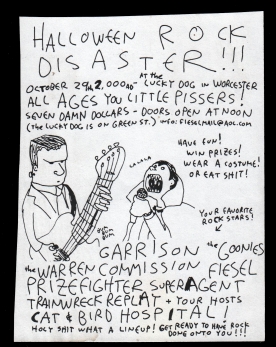 HALLOWEEN ROCK
DISASTER!!!
OCTOBER 29th, 2,000 AD AT THE LUCKY DOG IN WORCESTER
ALL AGES YOU LITTLE PISSERS!
SEVEN DAMN DOLLARS - DOORS OPEN AT NOON
(THE LUCKY DOG IS ON GREEN ST.) INFO: FIESELMAIL@AOL.COM
HAVE FUN!
WIN PRIZES!
WEAR A COSTUME!
OR EAT SHIT!
LA LA LA
DUM
DUM
YOUR FAVORITE
ROCK STARS!
GARRISON the GOONIES
the WARREN COMMISSION FIESEL
PRIZEFIGHTER SUPERAGENT
TRAINWRECK REPLAY + YOUR HOSTS
CAT & BIRD HOSPITAL!
HOLY SHIT WHAT A LINEUP! GET READY TO HAVE ROCK
DONE ONTO YOU!!!